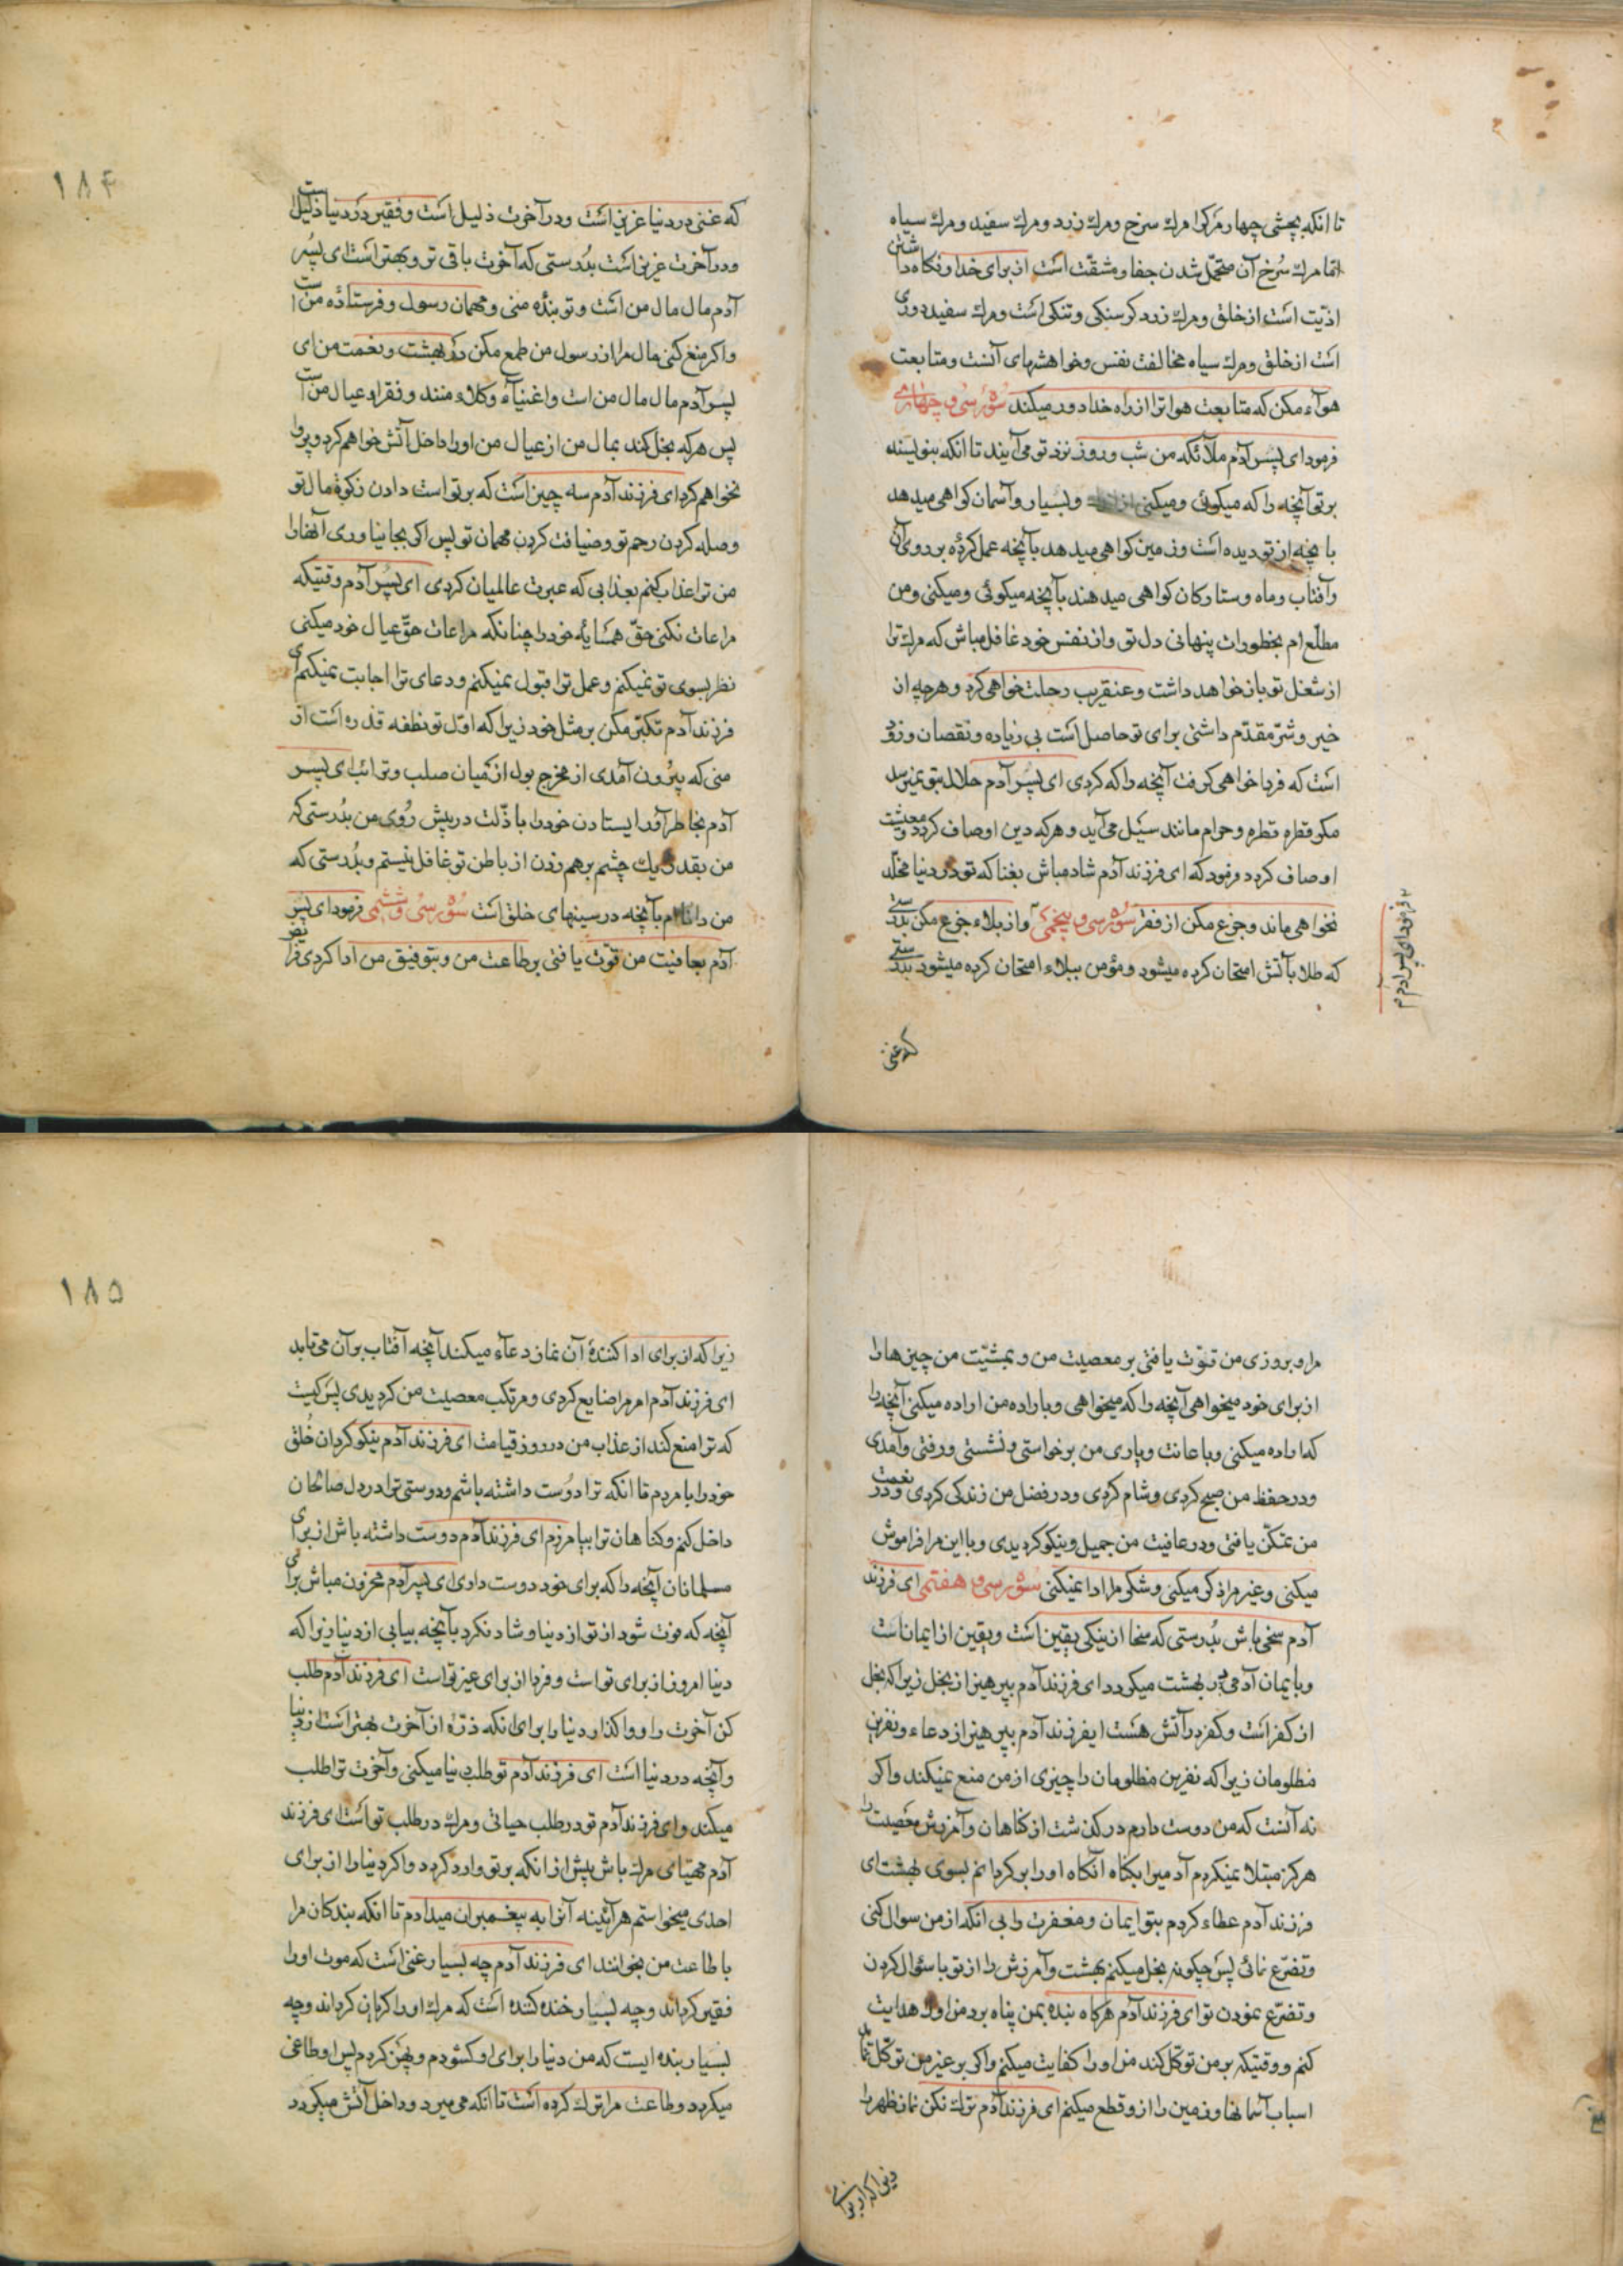 تا انکه بچشی چهار مرکرا مرك سرخ ومرك زرد ومرك سفید ومرك سیاه
امّا مرك سُرخ آن متحمّل شدن جفا ومشقّت است از برای خدا ونکاه داشتن
اذیّت است از خلق ومرك زرد کرسنکی وتنکی است ومرك سفید دوری
است از خلق ومرك سیاه مخالفت نفس وخواهشهای آنست ومتابعت
هوآء مکن که متابعت هوا ترا از راه خدا دور میکند سُورۀ سی و چهارمی
فرمود ای پسر آدم ملآئکه من شب وروز نزد تو می آیند تا انکه بنویسند
بر تو آنچه را که میکوئی ومیکنی از اندك وبسیار وآسمان کواهی میدهد
بانچه از تو دیده است وزمین کواهی میدهد بآنچه عمل کردۀ بر روی آن
وآفتاب وماه وستارکان کواهی میدهند بآنچه میکوئی ومیکنی ومن
مطلّع ام بخطورات پنهانی دل تو واز نفس خود غافل مباش که مرك ترا
از شغل تو باز خواهد داشت وعنقریب رحلت خواهی کرد وهرچه از
خیر وشرّ مقدّم داشتی برای تو حاصل است بی زیاده ونقصان وزود
است که فردا خواهی کرفت آنچه را که کردی ای پسر آدم حلال بتو نمیرسد
مکر قطره قطره وحرام مانند سَیل می آید وهرکه دین او صاف کردد معیشت
او صاف کردد وفرمود که ای فرزند آدم شاد مباش بغنا که تو در دنیا مخلّد
نخواهی ماند وجزع مکن از فقر سُورۀ سی و پنجمی واز بلاء جزع مکن بدرستی
که طلا بآتش امتحان کرده میشود ومؤمن ببلاء امتحان کرده میشود بدرستی
فرمود ای پسر آدم
که غنی
۱۸۴
که غنی در دنیا عزیز است ودر آخرت ذلیل است وفقیر در دنیا ذلیل است
ودر آخرت عزیز است بدُرستی که آخرت باقی تر وبهتر است ای پسُر
آدم مال مال من است وتو بندۀ منی ومهمان رسول وفرستادۀ من است
واکر منع کنی مال مرا از رسول من طمع مکن در بهشت ونعمت من ای
پسر آدم مال مال من است واغنیآء وکلاء منند وفقراء عیال من است
پس هرکه بخل کند بمال من از عیال من اورا داخل آتش خواهم کرد وپروا
نخواهم کرد ای فرزند آدم سه چیز است که بر تو است دادن زکوة مال تو
وصله کردن رحم تو وضیافت کردن مهمان تو پس اکر بجا نیاوری آنهارا
من ترا عذاب کنم بعذابی که عبرت عالمیان کردی ای پسُر آدم وقتیکه
مراعات نکنی حقّ همسایۀ خود را چنانکه مراعات حقّ عیال خود میکنی
نظر بسوی تو نمیکنم وعمل ترا قبول نمیکنم ودعای ترا اجابت نمیکنم ای
فرزند آدم تکبّر مکن بر مثل خود زیرا که اوّل تو نطفه قذره است از
منی که بیرُون آمدی از مخرج بول از میان صلب وترائب ای پسر
آدم بخاطر آور ایستادن خود را با ذلّت در پیش رُوی من بدُرستی که
من بقدر یك چشم برهم زدن از باطن تو غافل نیستم وبدُرستی که
من دانایم بآنچه در سینهای خلق است سُورۀ سی و ششمی فرمود ای پسر
آدم بعافیت من قوّت یافتی بر طاعت من وبتوفیق من ادا کردی فرایض
مرا وبروزی من قوّت یافتی بر معصیت من وبمشیّت من چیزهارا
از برای خود میخواهی آنچه را که میخواهی وباراده من اراده میکنی آنچه را
که اراده میکنی وباعانت ویاری من برخواستی ونشستی ورفتی وآمدی
ودر حفظ من صبح کردی وشام کردی ودر فضل من زندکی کردی ودر نعمت
من تمکّن یافتی ودر عافیت من جمیل ونیکو کردیدی وبا این مرا فراموش
میکنی وغیر مرا ذکر میکنی وشکر مرا ادا نمیکنی سُورۀ سی و هفتمی ای فرزند
آدم سخی باش بدُرستی که سخا از نیکی یقین است ویقین از ایمان است
وبایمان آدمی در بهشت میکردد ای فرزند آدم بپرهیز از بخل زیرا که بخل
از کفر است وکفر در آتش هست ایفرزند آدم بپرهیز از دعاء ونفرین
مظلومان زیرا که نفرین مظلومان را چیزی از من منع نمیکند واکر
نه آنست که من دوست دارم در کذشت از کناهان وآمرزش معصیت را
هرکز مبتلا نمیکردم آدمیرا بکناه آنکاه اورا برکردانم بسوی بهشت ای
فرزند آدم عطاء کردم بتو ایمان ومغفرت را بی انکه از من سوال کنی
وتضرّع نمائی پس چکونه بخل میکنم بهشت وآمرزش را از تو با سئوال کردن
وتضرّع نمودن تو ای فرزند آدم هرکاه بنده بمن پناه برد من اورا هدایت
کنم ووقتیکه بر من توکّل کند من اورا کفایت میکنم واکر بر غیر من توکّل نماید
اسباب آسمانها وزمین را از و قطع میکنم ای فرزند آدم ترك نکن نماز ظهر را
زیرا که از برای
۱۸۵
زیرا که از برای ادا کنندۀ آن نماز دعآء میکند آنچه آفتاب بر آن می تابد
ای فرزند آدم امر مرا ضایع کردی ومرتکب معصیت من کردیدی پس کیست
که ترا منع کند از عذاب من در روز قیامت ای فرزند آدم نیکو کردان خُلق
خود را با مردم تا انکه ترا دوُست داشته باشم ودوستی ترا در دل صالحان
داخل کنم وکناهان ترا بیامرزم ای فرزند آدم دوست داشته باش از برای
مسلمانان آنچه را که برای خود دوست داری ای پسر آدم محزون مباش برای
آنچه که فوت شود از تو از دنیا وشاد نکرد بآنچه بیابی از دنیا زیرا که
دنیا امروز از برای تو است وفردا از برای غیر تو است ای فرزند آدم طلب
کن آخرت را وواکذار دنیا را برای انکه ذرّۀ از آخرت بهتر است از دنیا
وآنچه در دنیا است ای فرزند آدم تو طلب دنیا میکنی وآخرت ترا طلب
میکند وای فرزند آدم تو در طلب حیاتی ومرك در طلب تو است ای فرزند
آدم مهیّای مرك باش پیش از انکه بر تو وارد کردد واکر دنیا را از برای
احدی میخواستم هر آئینه آنرا به پیغمبران میدادم تا انکه بندکان مرا
با طاعت من بخوانند ای فرزند آدم چه بسیار غنی است که موت اورا
فقیر کرداند وچه بسیار خنده کننده است که مرك اورا کریان کرداند وچه
بسیار بنده ایست که من دنیا را برای او کشودم وپهن کردم پس او طاغی
میکردد وطاعت مرا ترك کرده است تا انکه می میرد وداخل آتش میکردد